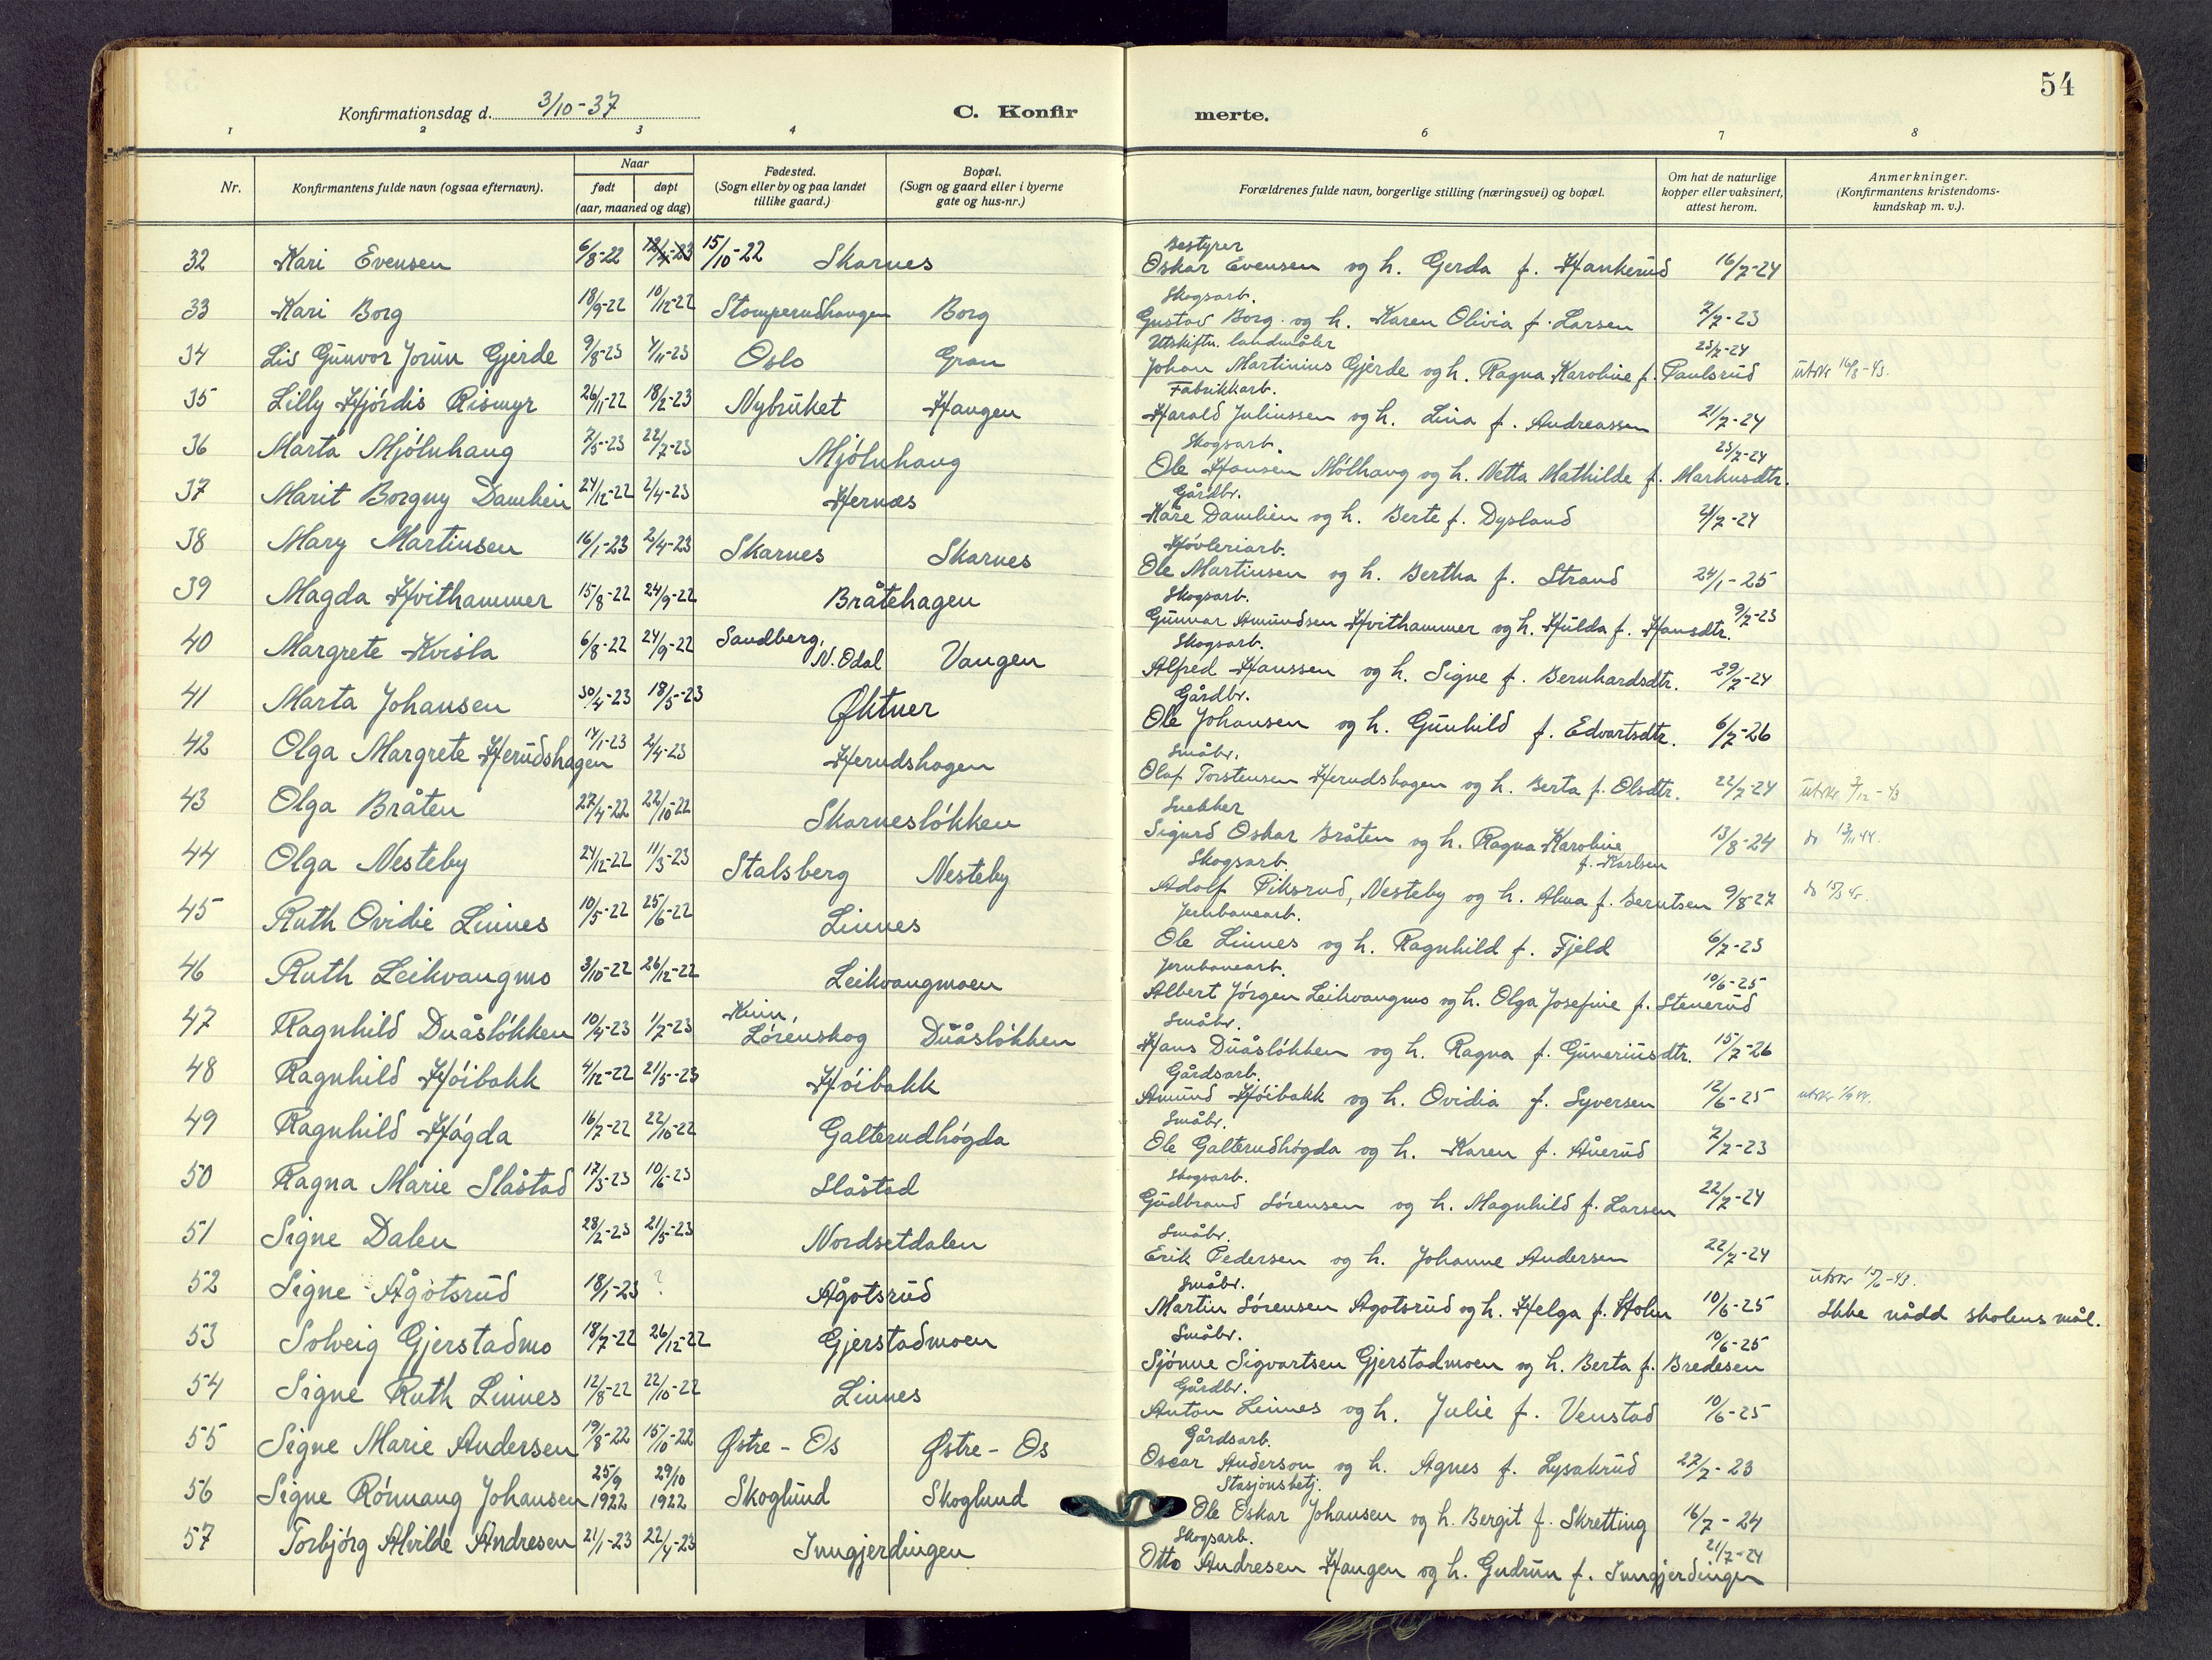 54
Konfirmationsdag d. 3/10-37
C. Konfirmerte.
1 2 3 4 6 7 8
Nr. Konfirmantens fulde navn (ogsaa efternavn). Naar født døpt (aar, maaned og dag) Fødested. (Sogn eller by og paa landet tillike gaard.) Bopæl. (Sogn og gaard eller i byerne gate og hus-nr.) Forældrenes fulde navn, borgerlige stilling (næringsvei) og bopæl. Om hat de naturlige kopper eller vaksinert, attest herom. Anmerkninger. (Konfirmantens kristendoms-kundskap m. v.).
Bestyrer
32 Kari Evensen 6/8-22 15/10-22 Skarnes Oskar Evensen og h. Gerda f. Hankerud 16/7-24
Skogsarb.
33 Kari Borg 18/9-22 10/12-22 Stomperudhaugen Borg Gustav Borg og h. Karen Olivia f. Larsen 7/7-23
Utskiftn. landmåler
34 Liv Gunvor Jorun Gjerde 9/8-23 4/11-23 Oslo Gran Johan Martinius Gjerde og h. Ragna Karoline f. Paulsrud 23/7-24 utskr 16/8-43.
Fabrikkarb.
35 Lilly Hjördis Rismyr 26/11-22 18/2-23 Nybruket Haugen Harald Juliussen og h. Lina f. Andreassen 21/7-24
Skogsarb.
36 Marta Mjölnhaug 7/5-23 22/7-23 Mjölnhaug Ole Hansen Mölhaug og h. Netta Mathilde f. Markusdtr. 23/7-24
Gårdbr.
37 Marit Borgny Damlien 24/12-22 2/4-23 Hernes Kåre Damlien og h. Berte f. Dysland 21/7-24
Hövleriarb.
38 Mary Martinsen 16/1-23 2/4-23 Skarnes Skarnes Ole Martinsen og h. Bertha f. Strand 24/1-25
Skogsarb.
39 Magda Hvithammer 15/8-22 24/9-22 Bråtehagen Gunnar Amundsen Hvithammer og h. Hulda f. Hansdtr. 9/7-23
Skogsarb.
40 Margrete Kvisla 6/8-22 24/9-22 Sandberg, N. Odal Vangen Alfred Hanssen og h. Signe f. Bernhardsdtr. 29/7-24
Gårdbr.
41 Marta Johansen 30/4-23 18/5-23 Øktner Ole Johansen og h. Gunhild f. Edvartsdtr. 6/7-26
Småbr.
42 Olga Margrete Herudshagen 14/1-23 2/4-23 Herudshagen Olaf Torstensen Herudshagen og h. Berta f. Olsdtr. 22/7-24
Snekker
43 Olga Bråten 27/4-22 22/10-22 Skarneslökken Sigurd Oskar Bråten og h. Ragna Karoline f. Karlsen 13/8-24
Skogsarb.
44 Olga Nesteby 24/12-22 11/3-23 Stalsberg Nesteby Adolf Piksrud, Nesteby og h. Alma f. Berntsen 9/8-27
Jernbanearb.
45 Ruth Ovidie Linnes 10/5-22 25/6-22 Linnes Ole Linnes og h. Ragnhild f. Fjeld 6/7-23
Jernbanearb.
46 Ruth Leikvangmo 3/10-22 26/12-22 Leikvangmoen Albert Jörgen Leikvangmo og h. Olga Josefine f. Stenerud 10/6-25
Småbr.
47 Ragnhild Duåslökken 10/4-23 1/7-23 Lörenskog Duåslökken Hans Duåslökken og h. Ragna f. Guneriusdtr. 15/7-26
Gårdsarb.
48 Ragnhild Höibakk 4/12-22 21/5-23 Höibakk Amund Höibakk og h. Ovidia f. Syversen 12/6-25
Småbr.
49 Ragnhild Högda 16/7-22 22/10-22 Galterudhögda Ole Galterudhögda og h. Karen f. Åverud 7/7-23
Skogsarb.
50 Ragna Marie Slåstad 17/3-23 10/6-23 Slåstad Gudbrand Sörensen og h. Magnhild f. Larsen 22/7-24
Småbr.
51 Signe Dalen 28/2-23 21/5-23 Nordsetdalen Erik Pedersen og h. Johanne Andersen 22/7-24
Småbr.
52 Signe Ågotsrud 18/1-23 ? Ågotsrud Martin Sörensen Agotsrud og h. Helga f. Holm 10/6-25 Ikke nådd skolens mål.
Småbr.
53 Solveig Gjerstadmo 18/7-22 26/12-22 Gjerstadmoen Sjönne Sigvartsen Gjerstadmoen og h. Berta f. Bredesen 10/6-25
Gårdbr.
54 Signe Ruth Linnes 12/8-22 22/10-22 Linnes Anton Linnes og h. Julie f. Venstad 10/6-25
Gårdsarb.
55 Signe Marie Andersen 19/8-22 15/10-22 Østre-Os Østre-Os Oscar Anderson og h. Agnes f. Lysakrud 27/7-23
Stasjonsbetj.
56 Signe Rönnaug Johansen 25/9 1922 29/10 1922 Skoglund Skoglund Ole Oskar Johansen og h. Bergit f. Skretting 16/7-24
Skogsarb.
57 Torbjörg Alvilde Andresen 21/1-23 22/4-23 Inngjerdingen Otto Andresen Haugen og h. Gudrun f. Inngjerdingen 21/7-24